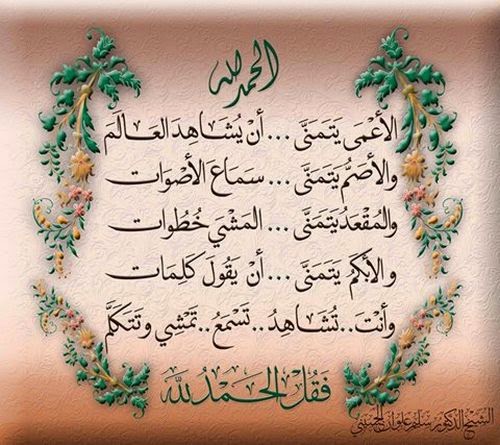 الحمد لله
الأَعْمَى يَتَمَنَّى ... أَنْ يُشَاهِدَ العَالَمَ
والأصَمُّ يَتَمَنَّى ... سَمَاعَ الأَصْوَات
والمُقْعَدُ يَتَمَنَّى ... المَشْيَ خُطُوات
والأبكَمُ يَتَمَنَّى ... أَنْ يَقُولَ كَلِمَات
وأَنْتَ .. تُشَاهِدُ .. تَسْمَعُ .. تَمْشِي وتَتَكَلَّمُ
فَقُل الحَمْدُ لِلَّهِ
الشيخ الدكتور سليم علوان الحسيني